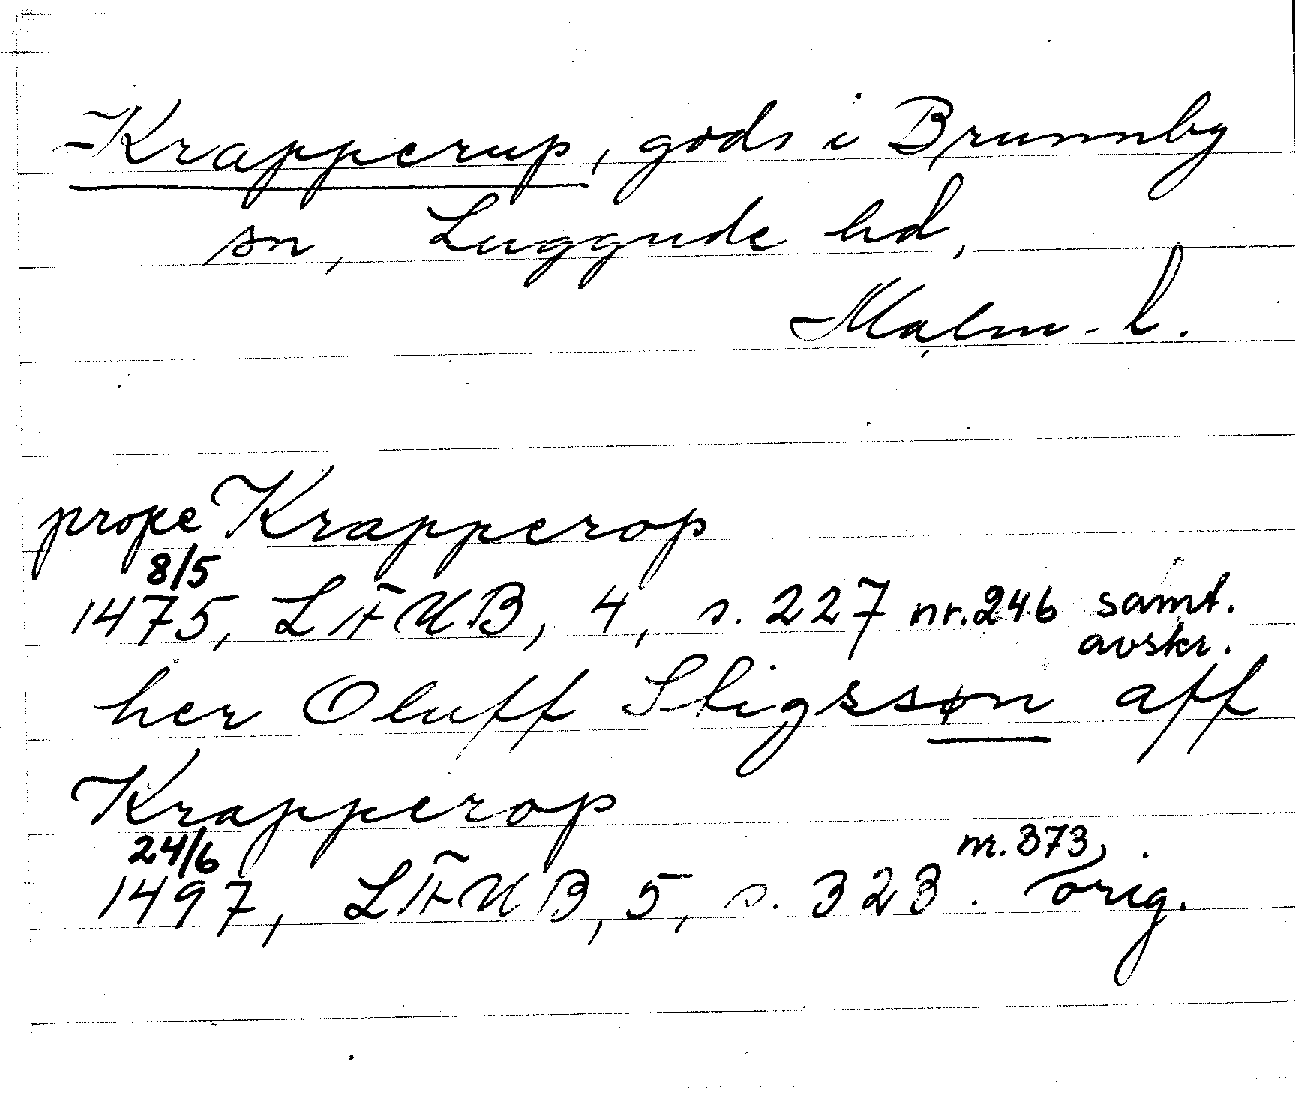 Krapperup, gods i Brunnby
sn, Luggude hd,
Malm. l.
prope Krapperop
8/5
1475, LÄUB, 4, s. 227 nr. 246 samt.
avskr.
her Oluff Stigssøn aff
Krapperop
24/6 nr. 373,
1497, LÄUB, 5, s. 323. orig.